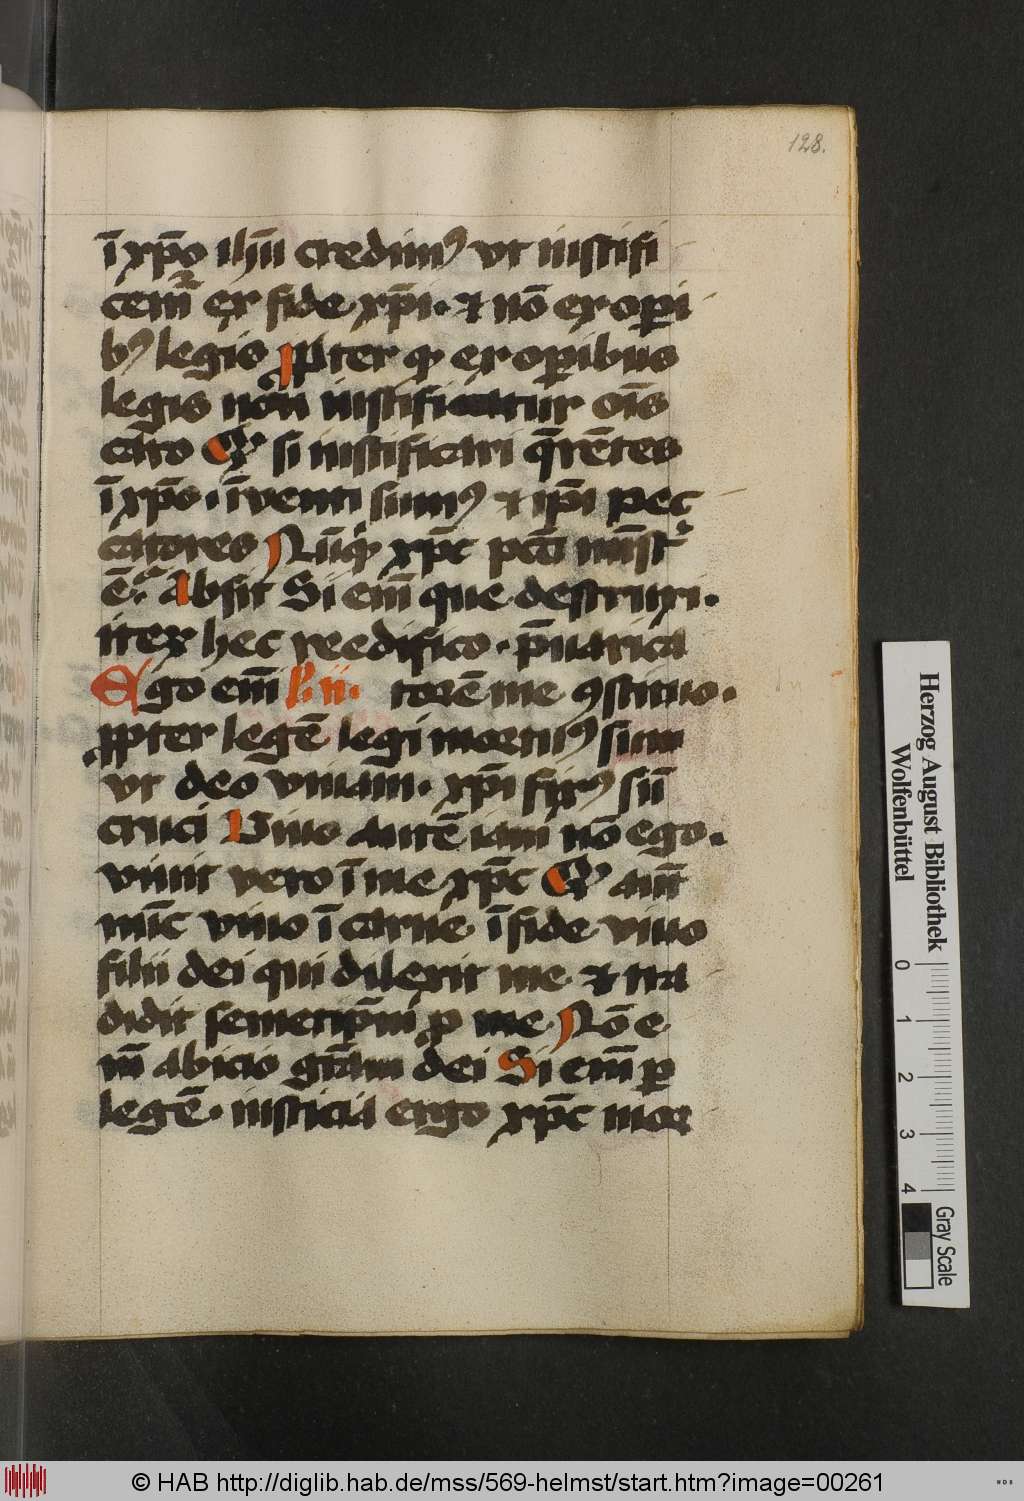 128.
ī xp̄o ihū credimꝰ vt iustifi
cem̄ ex fide xp̄i · et nō ex oꝑi
bꝰ legis ꝓpter ꝙ ex oꝑibus
legis nō iustificatur oīs
caro Qꝛ si iustificari q̄rētes
ī xp̄o · īuenti sumꝰ et ip̄i pec
catores Nūꝙ xp̄c pctī mīst
ē · Absit Si em̄ que destruxi ·
itex hec reedifico · p̄uarica
Ego em̄ ii · torē me ꝯstituo ·
ꝓpter legē legi mortuꝰ sum
vt deo viuam · xp̄i fixꝰ sū
cruci Viuo autē iam nō ego ·
viuit vero ī me xp̄c Qꝛ aut̄
nūc viuo ī carne ī fide viuo
filii dei qui dilexit me et tra
didit semetip̄m ꝓ me Nō e
m̄ abicio gr̄am dei Si em̄ ꝑ
legē · iusticia ergo xp̄c mor
Herzog August Bibliothek
Wolfenbüttel
0 1 2 3 4
Gray Scale
© HAB http://diglib.hab.de/mss/569-helmst/start.htm?image=00261